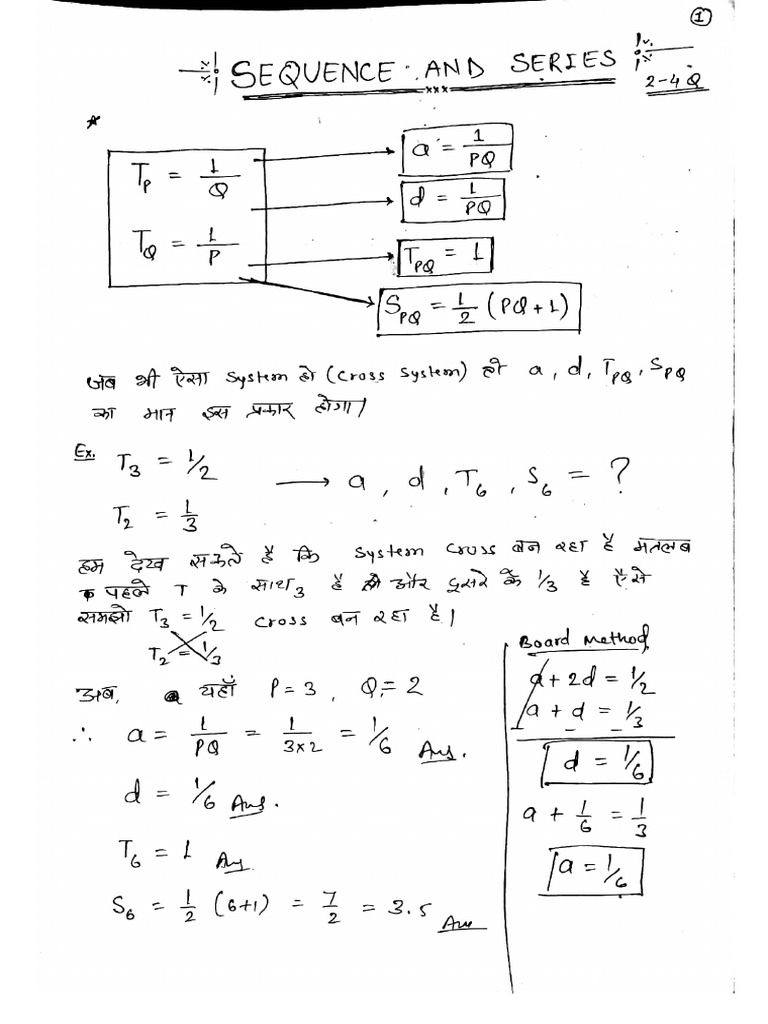 1
SEQUENCE AND SERIES
2-4 Q
T_P = 1/Q
T_Q = 1/P
a = 1/PQ
d = 1/PQ
T_PQ = 1
S_PQ = 1/2 (PQ+1)
जब भी ऐसा system हो (cross system) तो a, d, T_PQ, S_PQ
का मान इस प्रकार होगा।
Ex. T_3 = 1/2
T_2 = 1/3
→ a, d, T_6, S_6 = ?
हम देख सकते है कि system cross बन रहा है मतलब
पहले T के साथ 3 है और दूसरे के 1/3 है ऐसे
समझो T_3 = 1/2 cross बन रहा है।
T_2 = 1/3
अब, यहाँ P = 3, Q = 2
∴ a = 1/PQ = 1/3×2 = 1/6 Ans.
d = 1/6 Ans.
T_6 = 1 Ans
S_6 = 1/2 (6+1) = 7/2 = 3.5 Ans
Board Method
a + 2d = 1/2
a + d = 1/3
- - -
d = 1/6
a + 1/6 = 1/3
a = 1/6